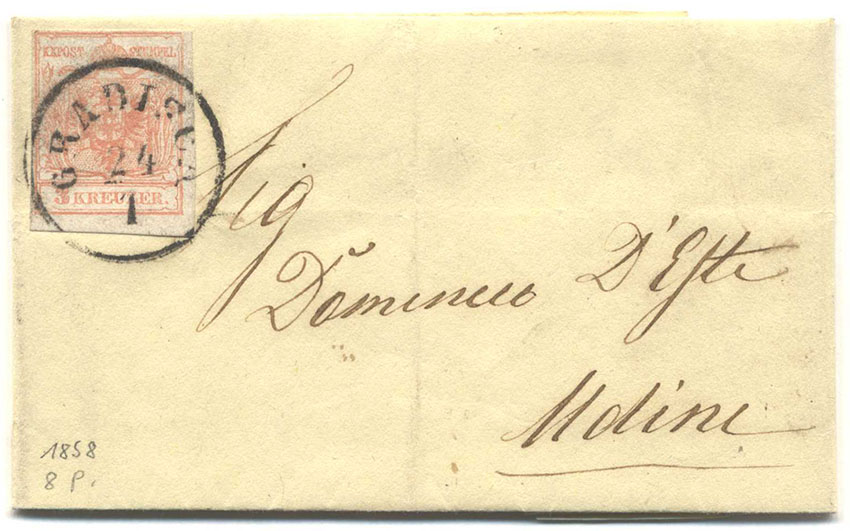 KKPOST STEMPEL
GRADISCA
24
1
3 KREUZER.
Sig
Domenico D'Este
Udine
1858
8 P.